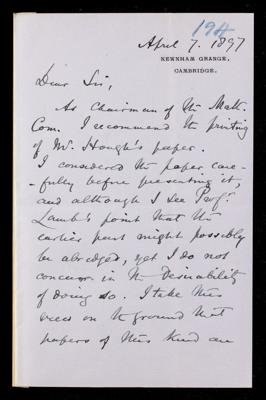 194
April 7. 1897
NEWNHAM GRANGE,
CAMBRIDGE.
Dear Sir,
As Chairman of the Math.
Com. I recommend the printing
of Mr. Hough's paper.
I considered the paper care-
-fully before presenting it,
and although I see Prof.
Lamb's point that the
earlier part might possibly
be abridged, yet I do not
concur in the desirability
of doing so. I take this
view on the ground that
papers of this kind are